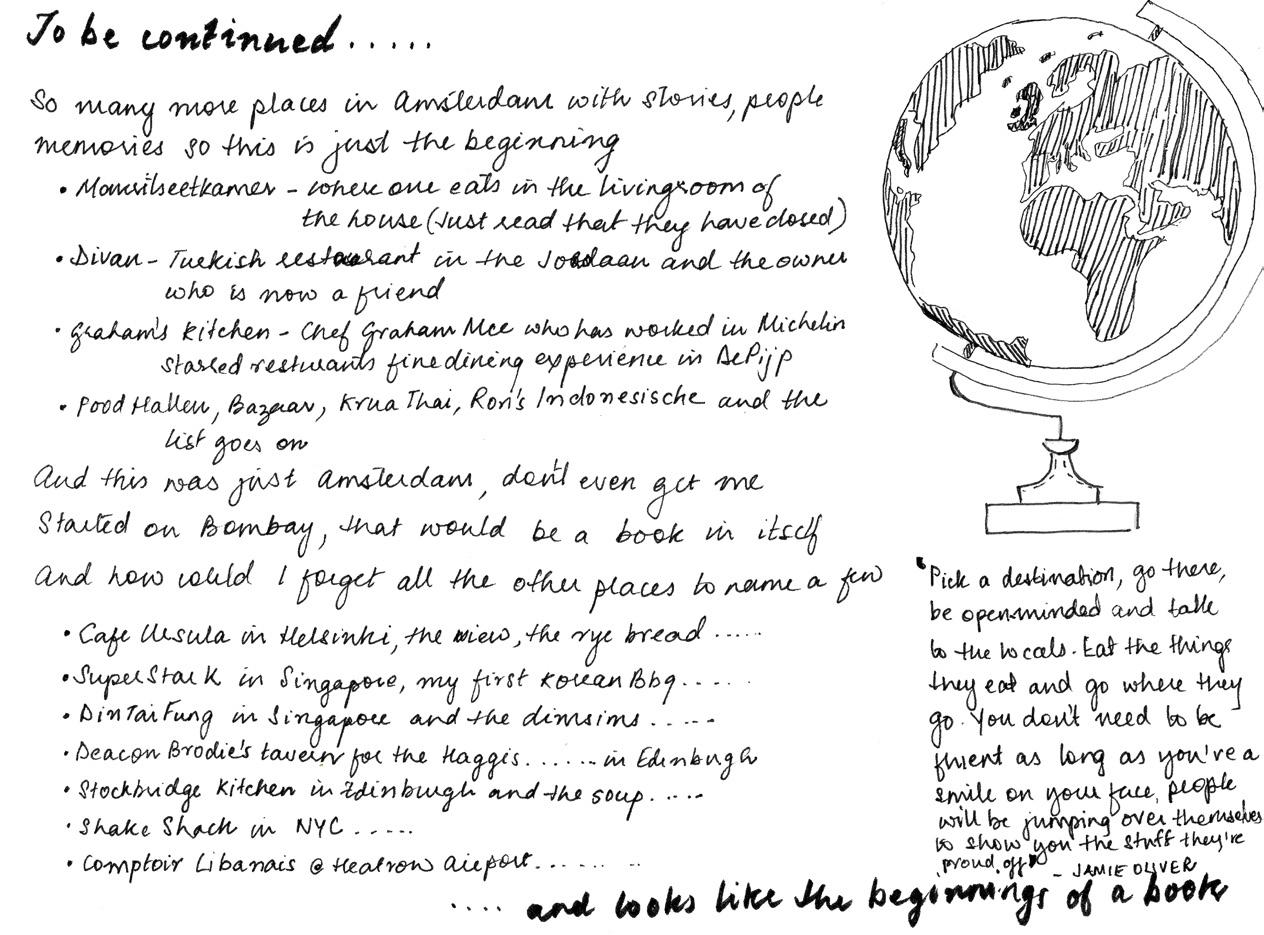 To be continued.....
So many more places in Amsterdam with stories, people
memories so this is just the beginning
• - where one eats in the livingroom of
the house (Just read that they have closed)
• Divan - Turkish restaurant in the Jordaan and the owner
who is now a friend
• Graham's Kitchen - Chef Graham Mee who has worked in Michelin
Starred resturants fine dining experience in DePijp
• Food Hallen, Bazaar, Krua Thai, Ron's Indonesische and the
list goes on
And this was just Amsterdam, don't even get me
Started on Bombay, that would be a book in itself
And how could I forget all the other places to name a few
• Cafe Ursula in Helsinki, the view, the rye bread .....
• SuperStar K in Singapore, my first Korean Bbq.....
• DinTaiFung in Singapore and the dimsims .....
• Deacon Brodie's tavern for the Haggis....... in Edinburgh
• Stockbridge Kitchen in Edinburgh and the soup.....
• Shake Shack in NYC .....
• Comptoir Libanais @ Heatrow Airport........
"Pick a destination, go there,
be openminded and talk
to the locals. Eat the things
they eat and go where they
go. You don't need to be
fluent as long as you're a
smile on your face, people
will be jumping over themselves
to show you the stuff they're
proud off"
- JAMIE OLIVER
.... and looks like the beginnings of a book